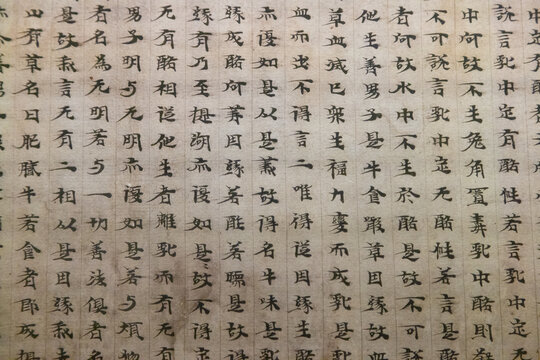 說言乳中定有酪性若言乳中定无
中何故不生兔角置毒乳中酪則
不可說言乳中定无酪性若言是
者何故水中不生於酪是故不可說
他生善男子是牛食噉草因緣
草血滅已眾生福力變而成乳是
血而出不得言二唯得說言因緣生
亦復如是以是義故得名牛味是
緣成酪何等因緣若酢若煖是故
緣有乃至提湖亦復如是是故不得定
无有酪相從他生者離乳而有无
男子明与无明亦復如是若与煩惱
者名為无明若与一切善法俱者名
是故我言无有二相以是因緣我
山有草名曰肥膩牛若食者即成提